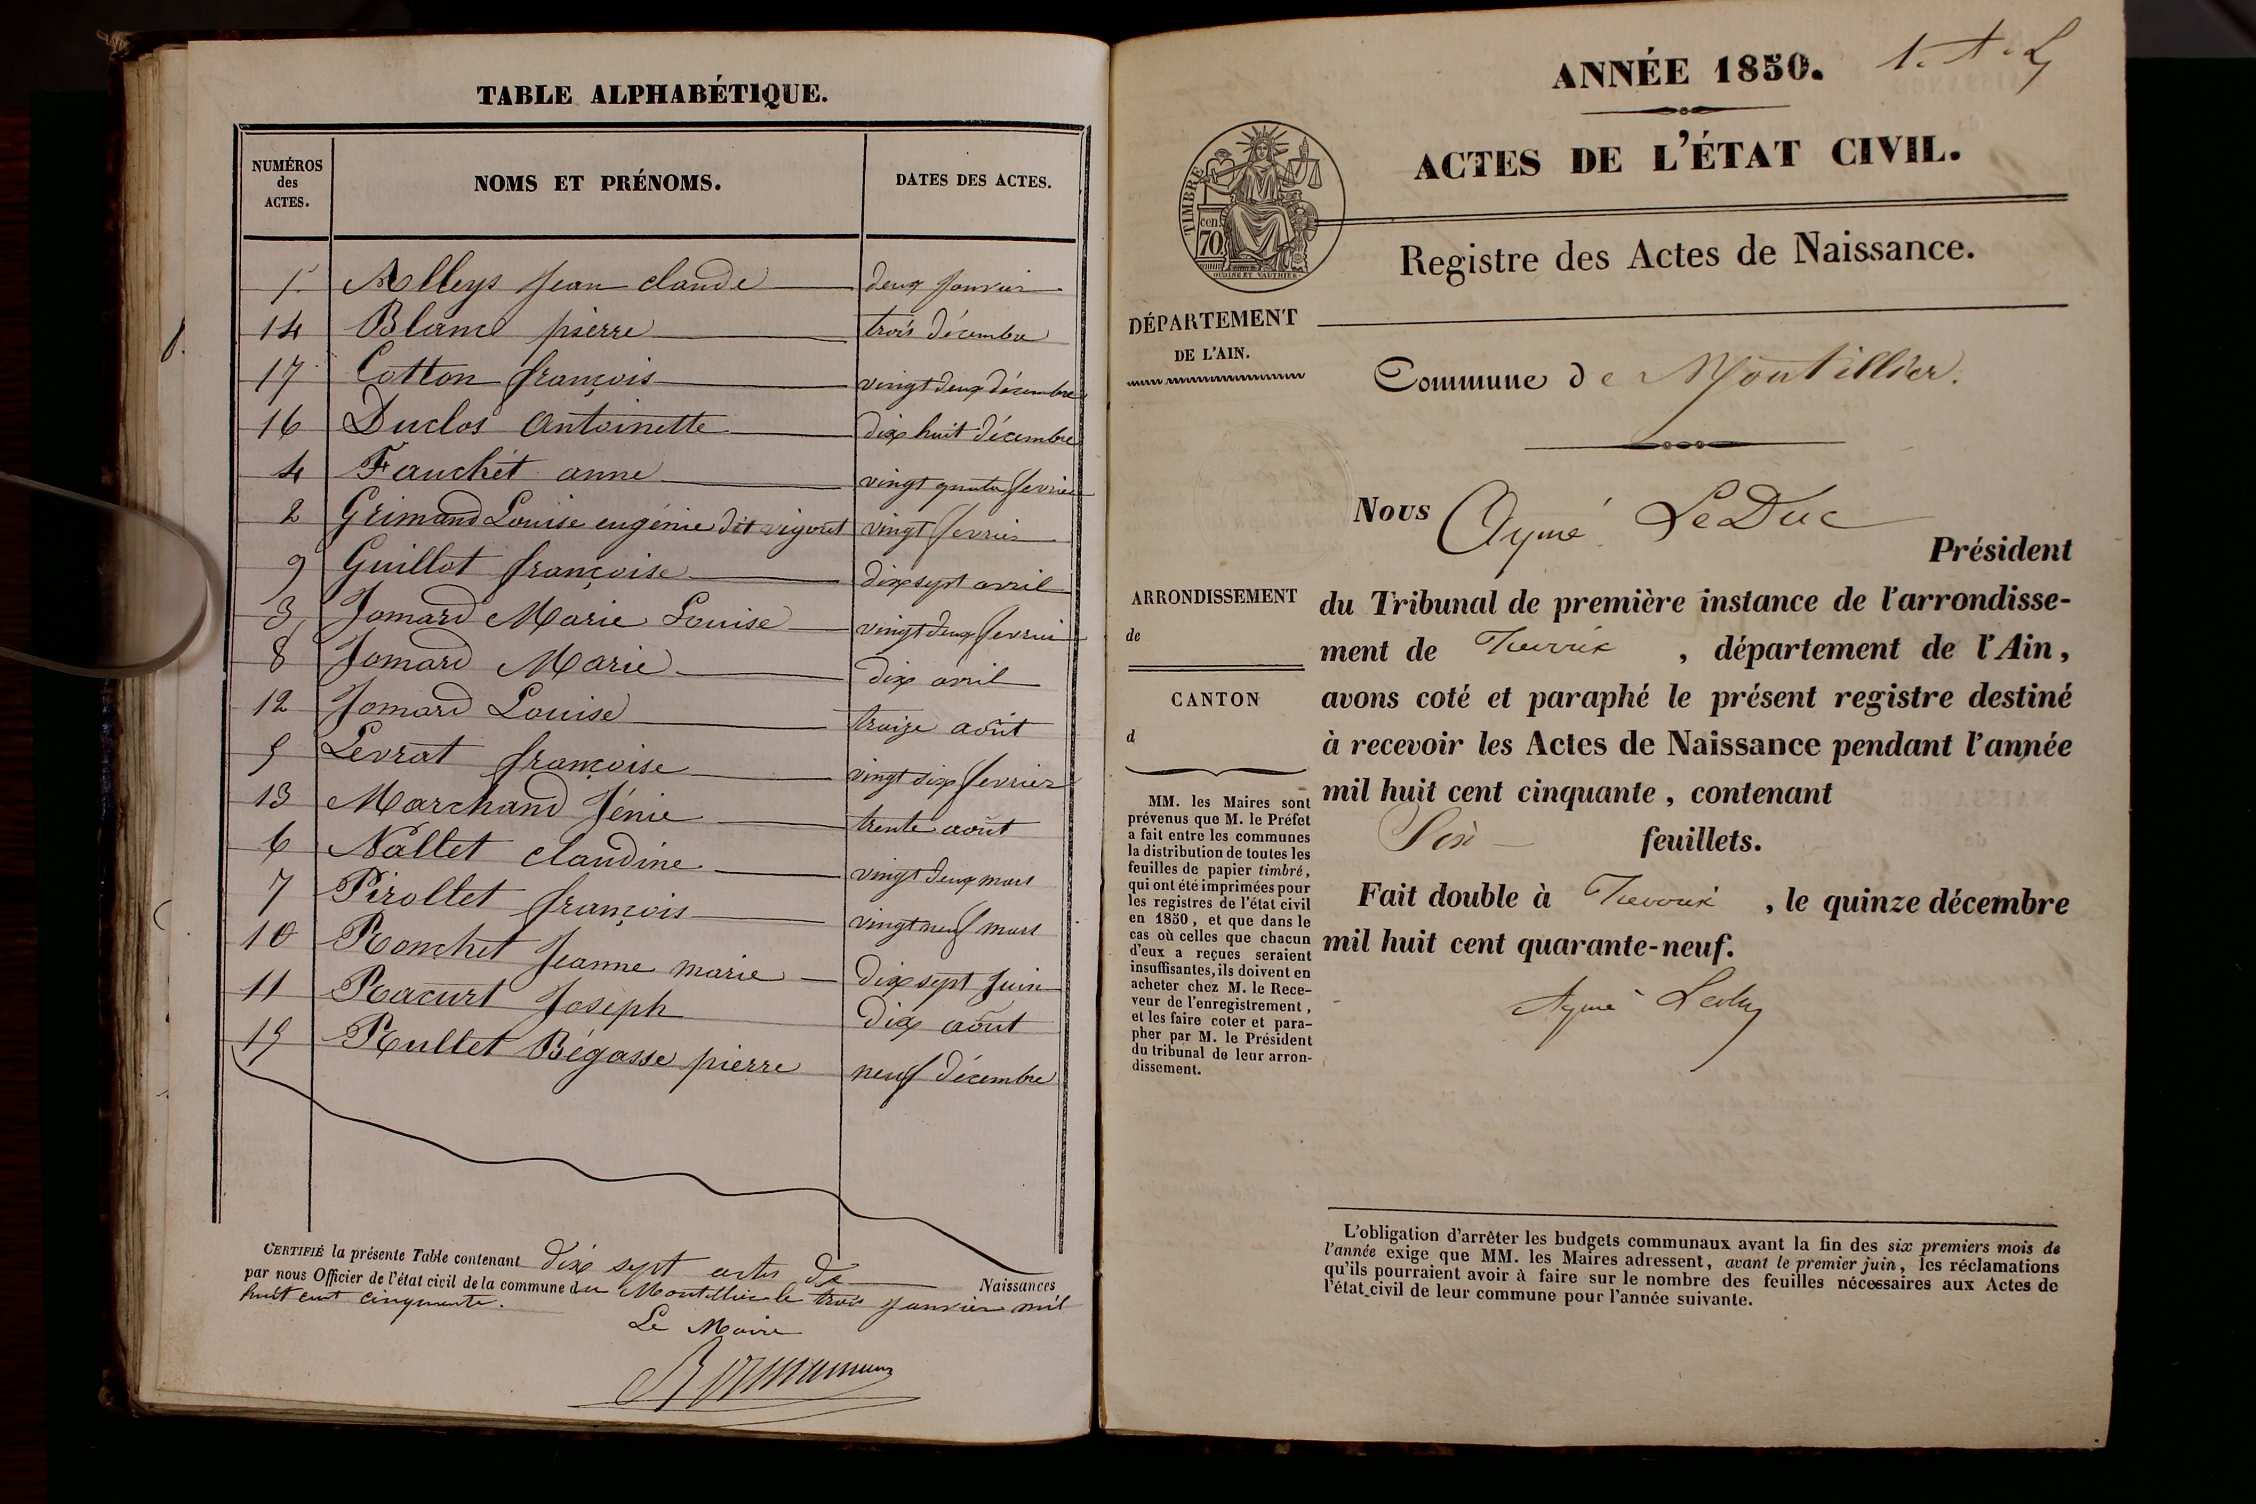 TABLE ALPHABÉTIQUE.
NUMÉROS
des
ACTES.
NOMS ET PRÉNOMS.
DATES DES ACTES.
1 Alleys Jean claude deux Janvier
14 Blanc pierre trois décembre
17 Cotton françois vingt deux décembre
16 Duclos Antoinette dix huit décembre
4 Fauchét anne vingt quatre fevrier
2 Grimand Louise eugénie dit vigout vingt fevrier
9 Guillot françoise dix sept avril
3 Jomard Marie Louise vingt deux fevrier
8 Jomard Marie dix avril
12 Jomard Louise treize août
5 Levrat françoise vingt six fevrier
13 Marchand Jénie trente août
6 Nallet claudine vingt deux mars
7 Pirollet françois vingt neuf mars
10 Ronchet Jeanne marie dix sept Juin
11 Racurt Joseph dix août
15 Rullet Bégasse pierre neuf décembre
CERTIFIÉ la présente Table contenant dix sept actes de Naissances
par nous Officier de l'état civil de la commune du Montellier le trois janvier mil
huit cent cinquante.
Le Maire
ANNÉE 1850.
ACTES DE L'ÉTAT CIVIL.
TIMBRE
cen.
70
OUDINE ET VAUTHIER
Registre des Actes de Naissance.
DÉPARTEMENT
DE L'AIN.
Commune de Montillier.
Nous Aymé LeDuc
Président
du Tribunal de première instance de l'arrondisse-
ment de Trevoux , département de l'Ain,
avons coté et paraphé le présent registre destiné
à recevoir les Actes de Naissance pendant l'année
mil huit cent cinquante, contenant
Six feuillets.
Fait double à Trevoux , le quinze décembre
mil huit cent quarante-neuf.
Aymé Leduc
ARRONDISSEMENT
de
CANTON
d
MM. les Maires sont
prévenus que M. le Préfet
a fait entre les communes
la distribution de toutes les
feuilles de papier timbré,
qui ont été imprimées pour
les registres de l'état civil
en 1850, et que dans le
cas où celles que chacun
d'eux a reçues seraient
insuffisantes, ils doivent en
acheter chez M. le Rece-
veur de l'enregistrement,
et les faire coter et para-
pher par M. le Président
du tribunal de leur arron-
dissement.
L'obligation d'arrêter les budgets communaux avant la fin des six premiers mois de
l'année exige que MM. les Maires adressent, avant le premier juin, les réclamations
qu'ils pourraient avoir à faire sur le nombre des feuilles nécessaires aux Actes de
l'état civil de leur commune pour l'année suivante.